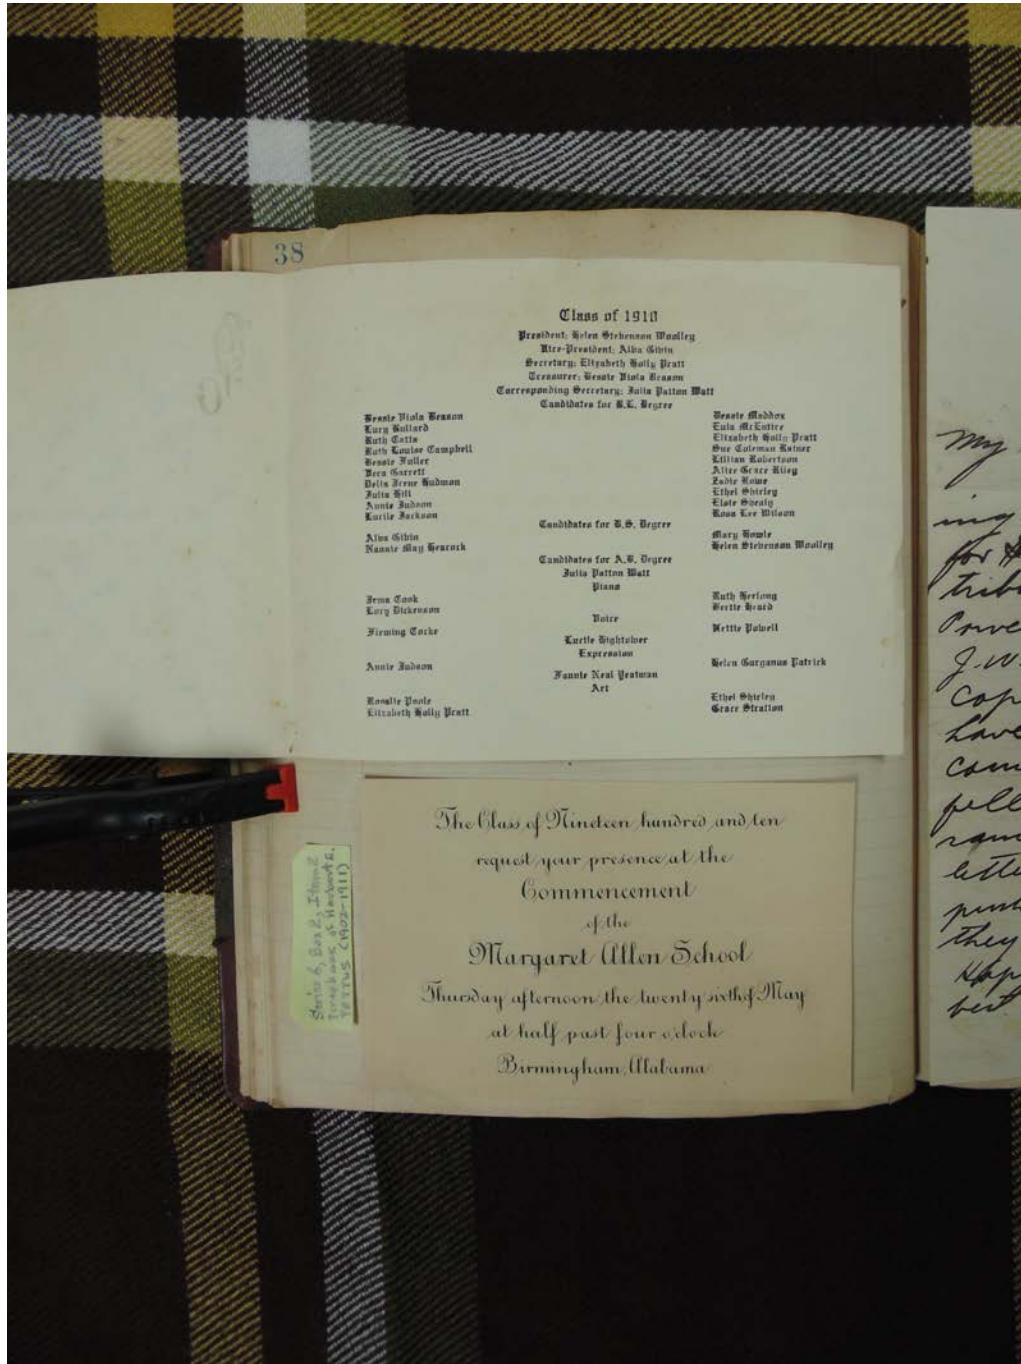 38
Class of 1910
President: Helen Stevenson Woolley
Vice-President: Alva Gibin
Secretary: Elizabeth Holly Pratt
Treasurer: Bessie Viola Beason
Corresponding Secretary: Julia Patton Watt
Candidates for B.L. Degree
Bessie Viola Beason
Lucy Bullard
Ruth Catts
Ruth Louise Campbell
Bessie Fuller
Vera Garrett
Delia Irene Hudmon
Julia Hill
Annie Judson
Lucile Jackson
Bessie Maddox
Eula McEntire
Elizabeth Holly Pratt
Sue Coleman Ratner
Lillian Robertson
Alice Grace Riley
Zadie Rowe
Ethel Shirley
Elsie Shealy
Rosa Lee Wilson
Candidates for B.S. Degree
Alva Gibin
Nannie May Heacock
Mary Howle
Helen Stevenson Woolley
Candidates for A.B. Degree
Julia Patton Watt
Piano
Irma Cook
Lucy Dickenson
Ruth Herlong
Bertie Heard
Voice
Fleming Cocke
Nettie Powell
Lucile Hightower
Expression
Annie Judson
Helen Gurganus Patrick
Fannie Neal Yeatman
Art
Rosalie Poole
Elizabeth Holly Pratt
Ethel Shirley
Grace Stratton
The Class of Nineteen hundred and ten
request your presence at the
Commencement
of the
Margaret Allen School
Thursday afternoon the twenty sixth of May
at half past four o'clock
Birmingham, Alabama
Series 6, Box 2, Item 2
Scrapbook of Herbert E.
PETTUS (1902-1911)
My
ing
for
Powe
J.W.
Cop
have
com
fell
letter
they